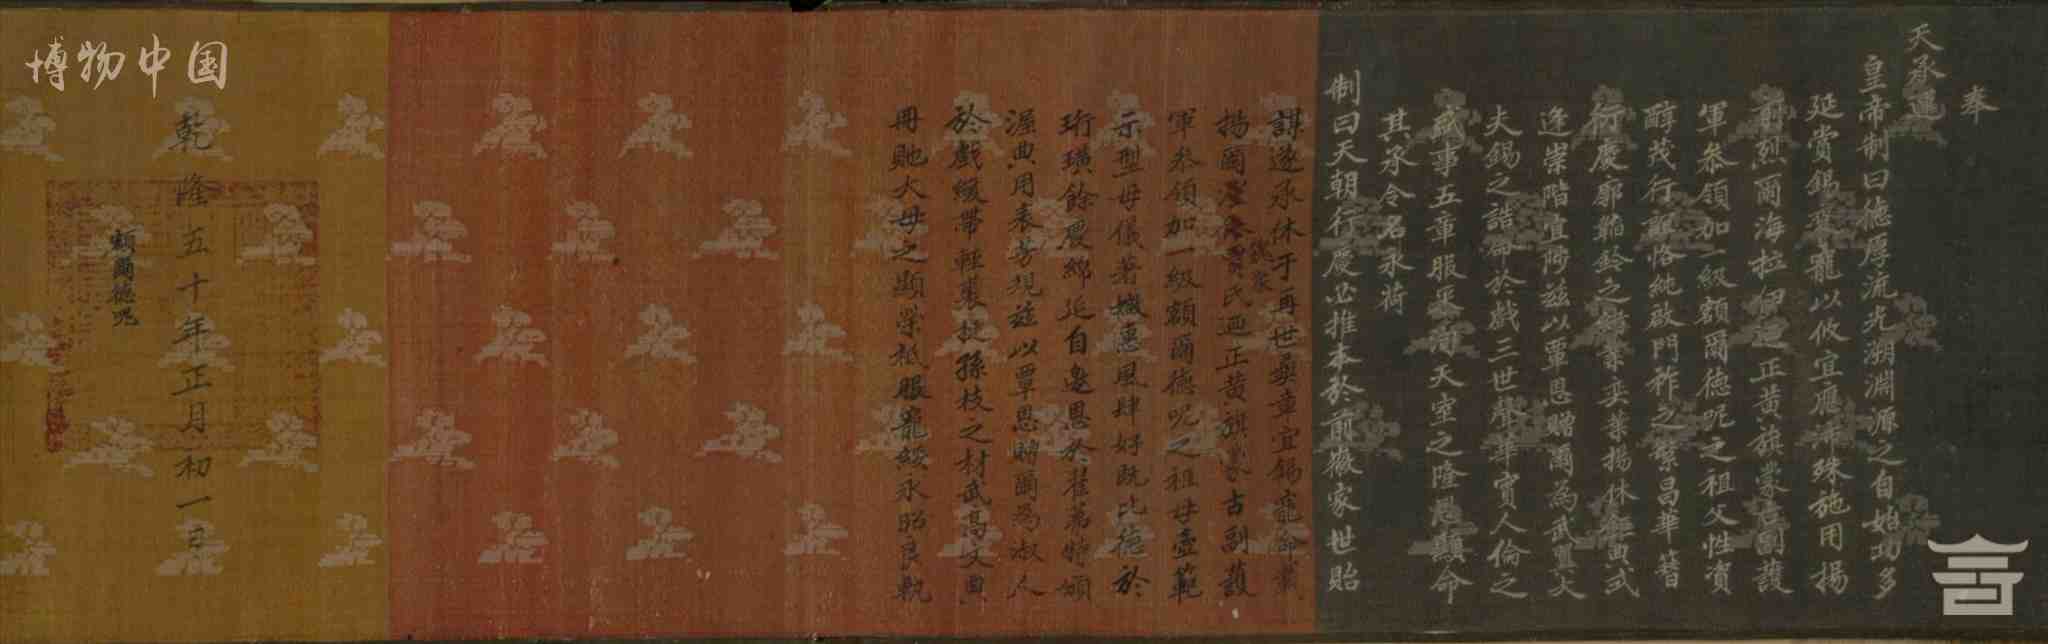 奉
天承運
皇帝制曰德厚流光溯淵源之自始功多
延賞錫寵以攸宜應沛殊施用揚
前烈爾海拉正黃旗蒙古副護
軍叅領加一級額爾德呢之祖父性資
醇茂行誼恪純啟門祚之繁昌華簪
衍慶廓韜鈐之緒業奕葉揚休典式
逢崇階宜陟茲以覃恩贈爾為武翼大
夫錫之誥命於戲三世聲華實人倫之
盛事五章服采天室之隆恩顯命
其承令名永荷
制曰天朝行慶必推本於前徽家世貽
謀遂承休于再世彞章宜錫寵命載
揚爾氏迺正黃旗蒙古副護
軍叅領加一級額爾德呢之祖母壼範
示型母儀著媺惠風肆好既比德於
珩璜餘慶綿延自邀恩於翟茀特頒
渥典用表芳規茲以覃恩贈爾為淑人
於戲緩帶輕裘挺孫枝之材武高文典
冊貤大母之顯榮祗服寵綏永昭良執
乾隆五十年正月初一日
額爾德呢
博物中国